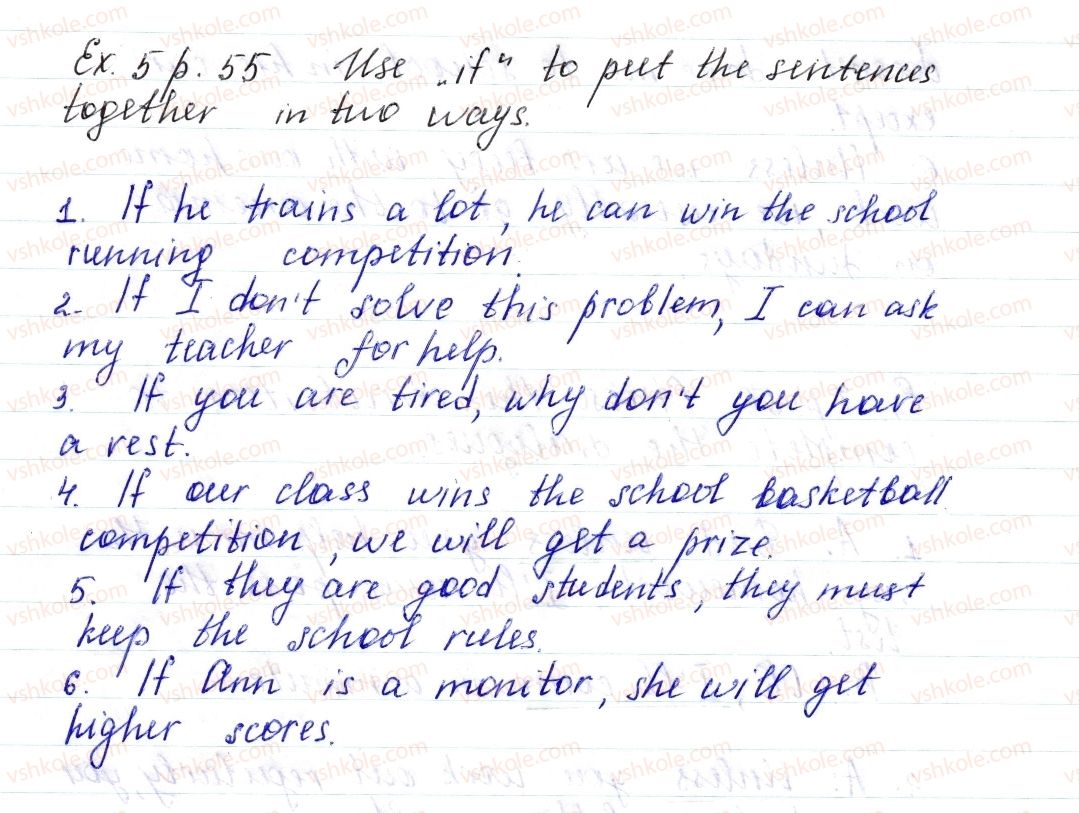 Ex. 5 p. 55 Use „if" to put the sentences
together in two ways.
1. If he trains a lot, he can win the school
running competition.
2. If I don't solve this problem, I can ask
my teacher for help.
3. If you are tired, why don't you have
a rest.
4. If our class wins the school basketball
competition, we will get a prize.
5. If they are good students, they must
keep the school rules.
6. If Ann is a monitor, she will get
higher scores.